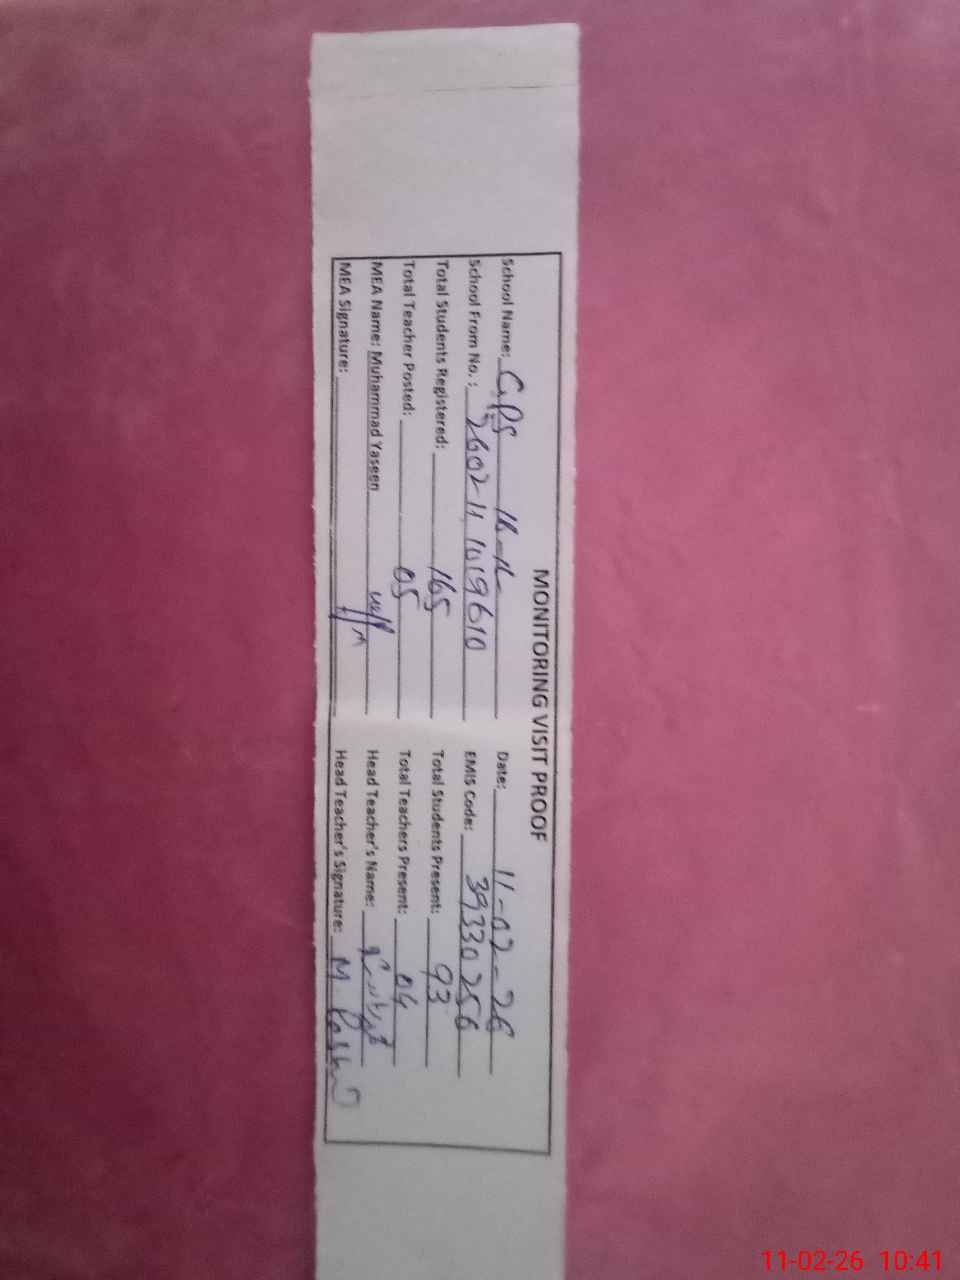 MONITORING VISIT PROOF
School Name: GPS Date: 11-02-26
School From No.: 2602111019610 EMIS Code: 39330256
Total Students Registered: 165 Total Students Present: 93
Total Teacher Posted: 05 Total Teachers Present: 04
MEA Name: Muhammad Yaseen Head Teacher's Name:
MEA Signature: Head Teacher's Signature: M.
11-02-26 10:41